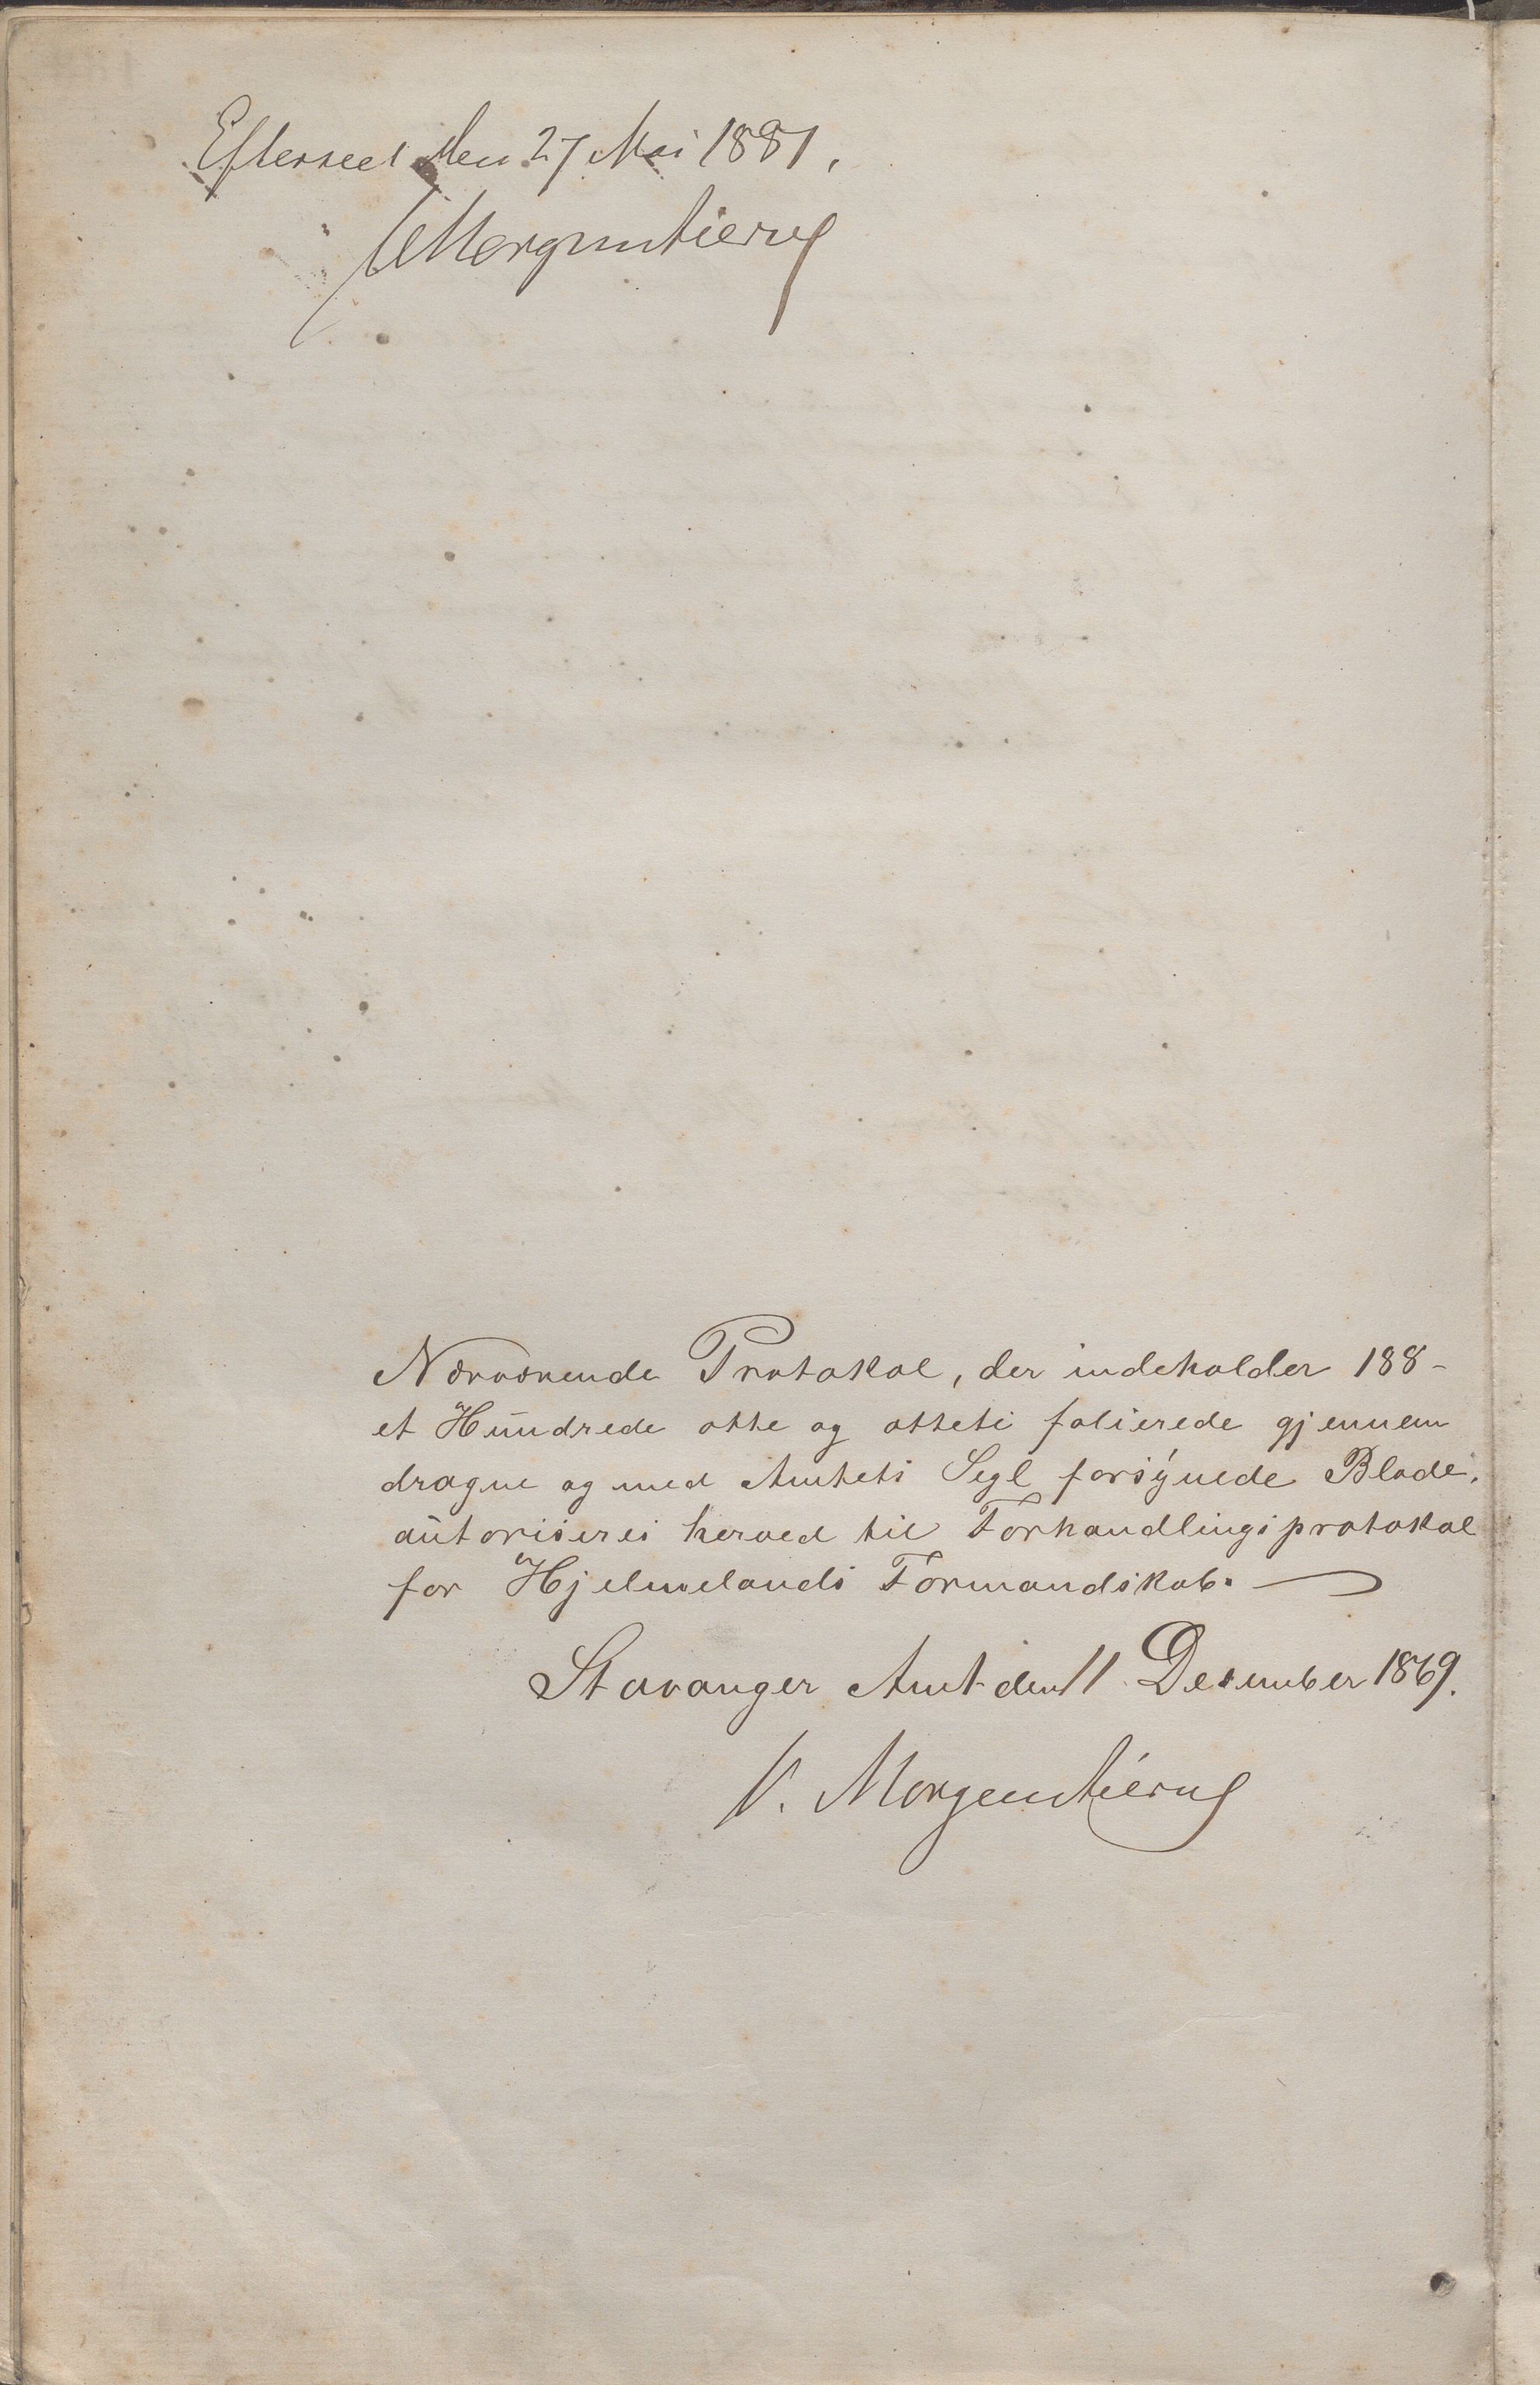 Efterseet den 27 Mai 1881.
Morgenstierne
Nærværende Protokol, der indeholder 188-
et Hundrede otte og otteti folierede gjennem
dragne og med Amtets Segl forsynede Blade,
autoriseres herved til Forhandlingsprotokol
for Hjelmelands Formandskab.
Stavanger Amt den 11 December 1869.
V. Morgenstierne